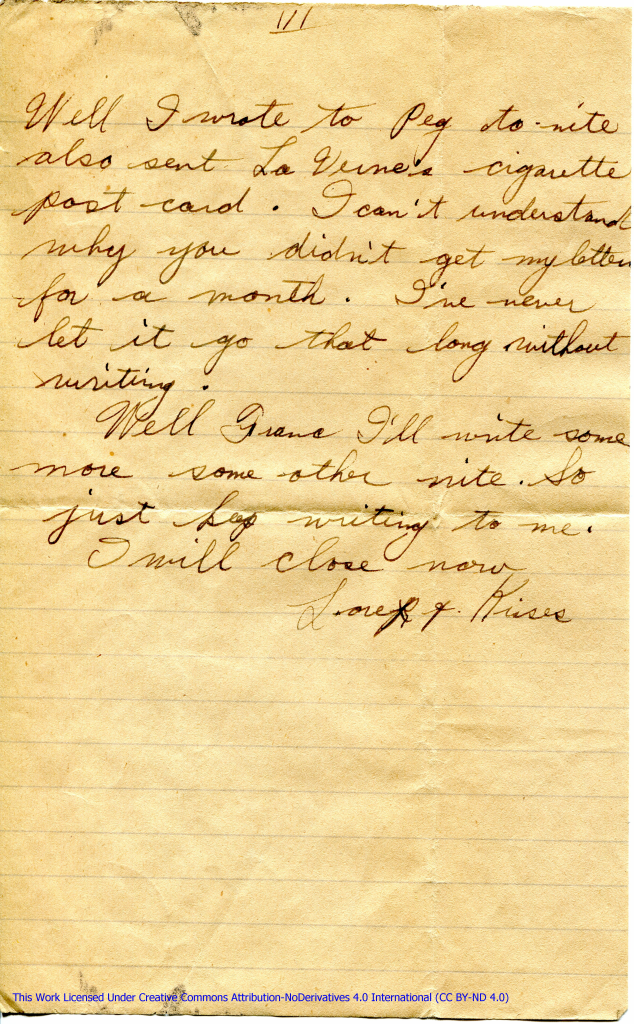 III
Well I wrote to Peg to-nite
also sent La Verne's cigarette
post card. I can't understand
why you didn't get my letter
for a month. I've never
let it go that long without
writing.
Well Franc I'll write some
more some other nite. So
just kep writing to me.
I will close now
Love & Kises
This Work Licensed Under Creative Commons Attribution-NoDerivatives 4.0 International (CC BY-ND 4.0)